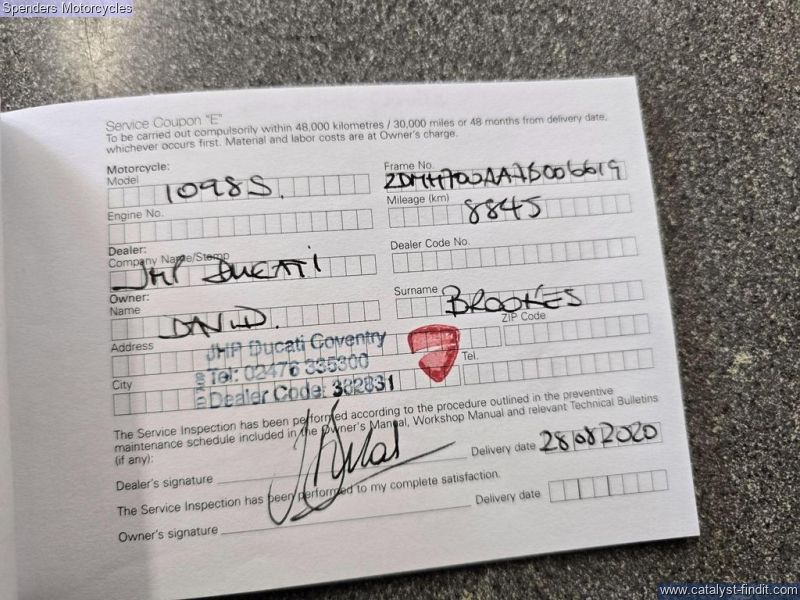 Spenders Motorcycles
Service Coupon "E"
To be carried out compulsorily within 48,000 kilometres / 30,000 miles or 48 months from delivery date,
whichever occurs first. Material and labor costs are at Owner's charge.
Motorcycle:
Model 1098S.
Frame No. ZDMH700AA7B006619
Engine No.
Mileage (km) 8845
Dealer:
Company Name/Stamp JHP DUCATI
Dealer Code No.
Owner:
Name DAVID.
Surname BROOKES
Address
ZIP Code
JHP Ducati Coventry
Tel: 02476 335300
Dealer Code: 382831
City
Tel.
The Service Inspection has been performed according to the procedure outlined in the preventive
maintenance schedule included in the Owner's Manual, Workshop Manual and relevant Technical Bulletins
(if any):
Dealer's signature
Delivery date 28 08 2020
The Service Inspection has been performed to my complete satisfaction.
Owner's signature
Delivery date
www.catalyst-findit.com